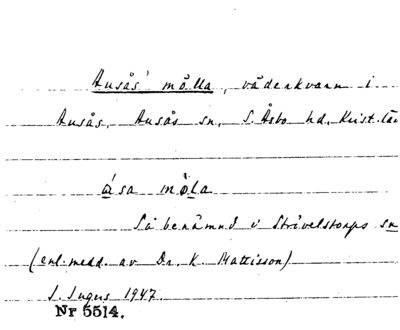 Ausås' mölla, väderkvarn i
Ausås, Ausås sn, S. Åsbo hd, Krist. län
åsa möla
Så benämnd i Strövelstorps sn
(enl. medd. av Dr. K. Mattisson)
S. 1947.
Nr 5514.